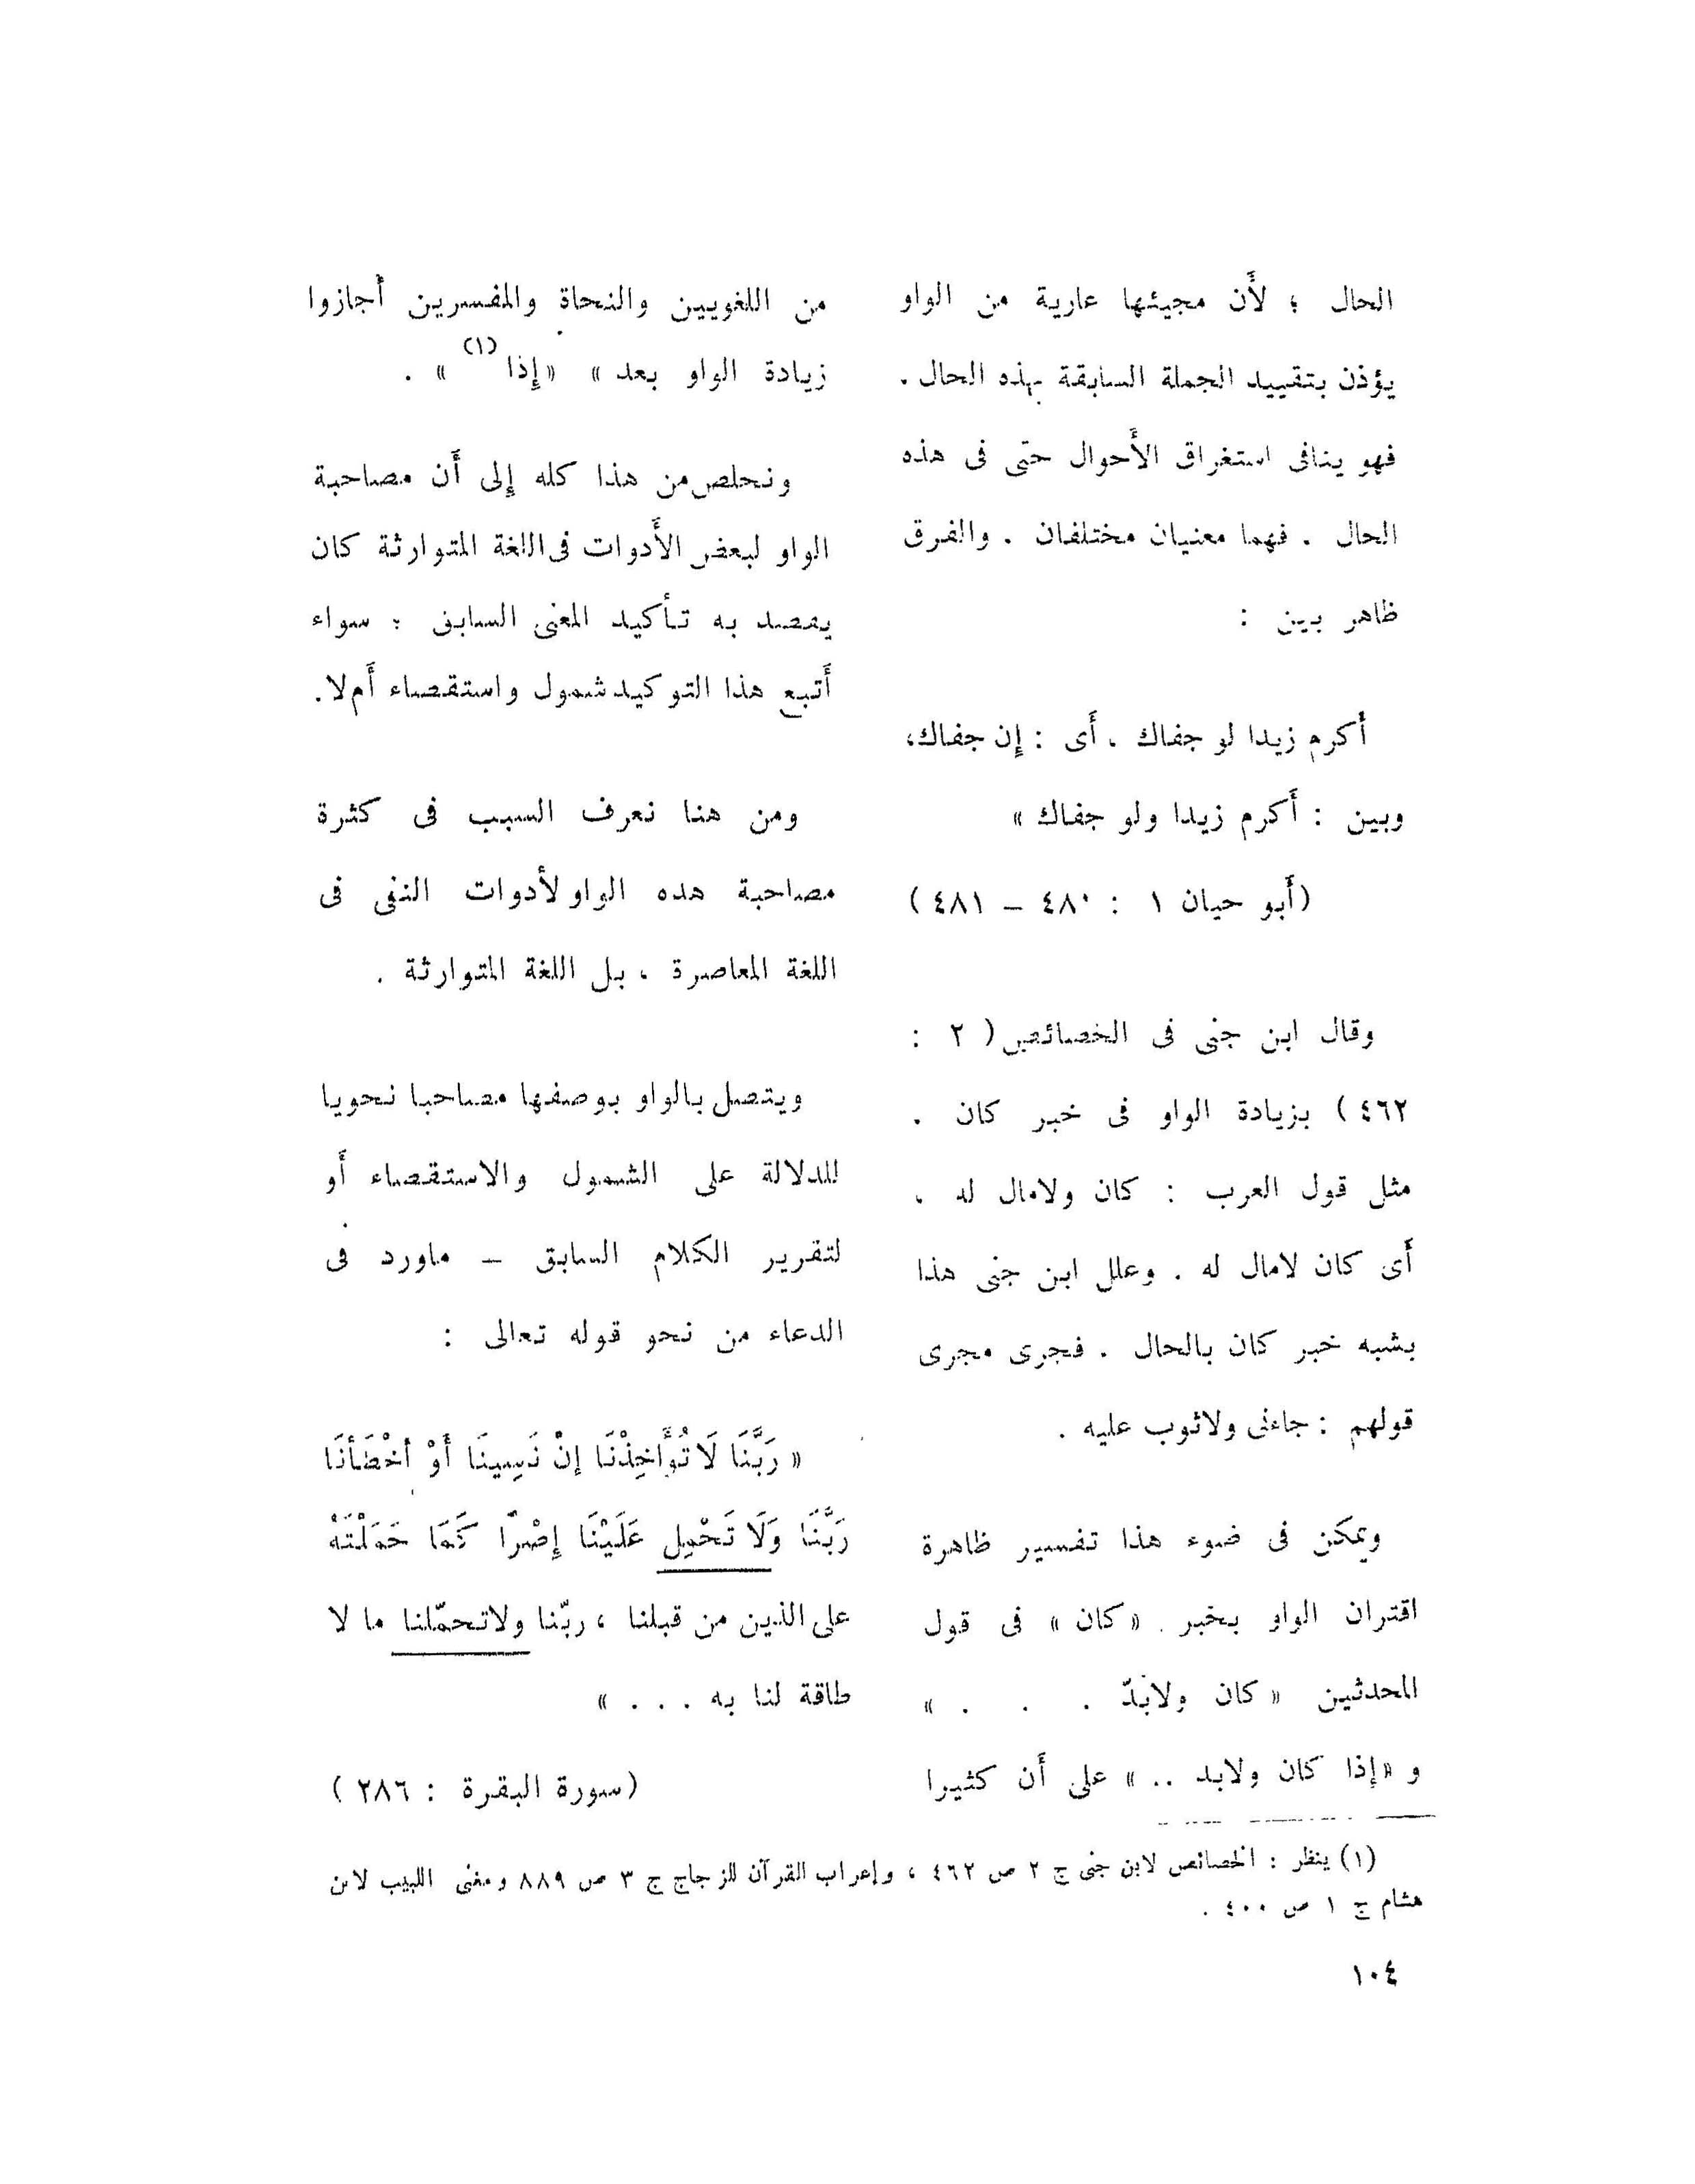 الحال ؛ لأَن مجيئها عارية من الواو
يؤذن بتقييد الجملة السابقة بهذه الحال .
فهو ينافى استغراق الأَحوال حتى فى هذه
الحال . فهما معنيان مختلفان . والفرق
ظاهر بين :
أَكرم زيدا لو جفاك . أَى : إِن جفاك،
وبين : أَكرم زيدا ولو جفاك »
(أَبو حيان ١ : ٤٨٠ – ٤٨١ )
وقال ابن جنى فى الخصائص ( ٢ :
٤٦٢ ) بزيادة الواو فى خبر كان .
مثل قول العرب : كان ولامال له .
أَى كان لامال له . وعلل ابن جنى هذا
بشبه خبر كان بالحال . فجرى مجرى
قولهم : جاءنى ولاثوب عليه .
ويمكن فى ضوء هذا تفسير ظاهرة
اقتران الواو بخبر « كان » فى قول
المحدثين « كان ولابدّ . . . »
و « إذا كان ولابد .. » على أَن كثيرا
من اللغويين والنحاة والمفسرين أَجازوا
زيادة الواو بعد » « إِذا (١) » .
ونخلص من هذا كله إِلى أَن مصاحبة
الواو لبعض الأَدوات فى اللغة المتوارثة كان
يقصد به تأْكيد المعنى السابق ؛ سواء
أَتبع هذا التوكيد شمول واستقصاء أَم لا.
ومن هنا نعرف السبب فى كثرة
مصاحبة هده الواو لأدوات النفى فى
اللغة المعاصرة ، بل اللغة المتوارثة .
ويتصل بالواو بوصفها مصاحبا نحويا
للدلالة على الشمول والاستقصاء أَو
لتقرير الكلام السابق – ماورد فى
الدعاء من نحو قوله تعالى :
« رَبَّنَا لَا تُؤَاخِذْنَا إنْ نَسِينَا أَوْ أَخْطَأنَا
رَبَّنَا وَلَا تَحْمِل عَلَيْنَا إِصْرًا كَمَا حَمَلْتَهُ
على الذين من قبلنا ، ربّنا ولاتحمّلنا ما لا
طاقة لنا به . . . »
(سورة البقرة : ٢٨٦ )
(١) ينظر : الخصائص لابن جنى ج ٢ ص ٤٦٢ ، وإعراب القرآن للزجاج ج ٣ ص ٨٨٩ ومغنى اللبيب لابن
هشام ج ١ ص ٤٠٠ .
١٠٤